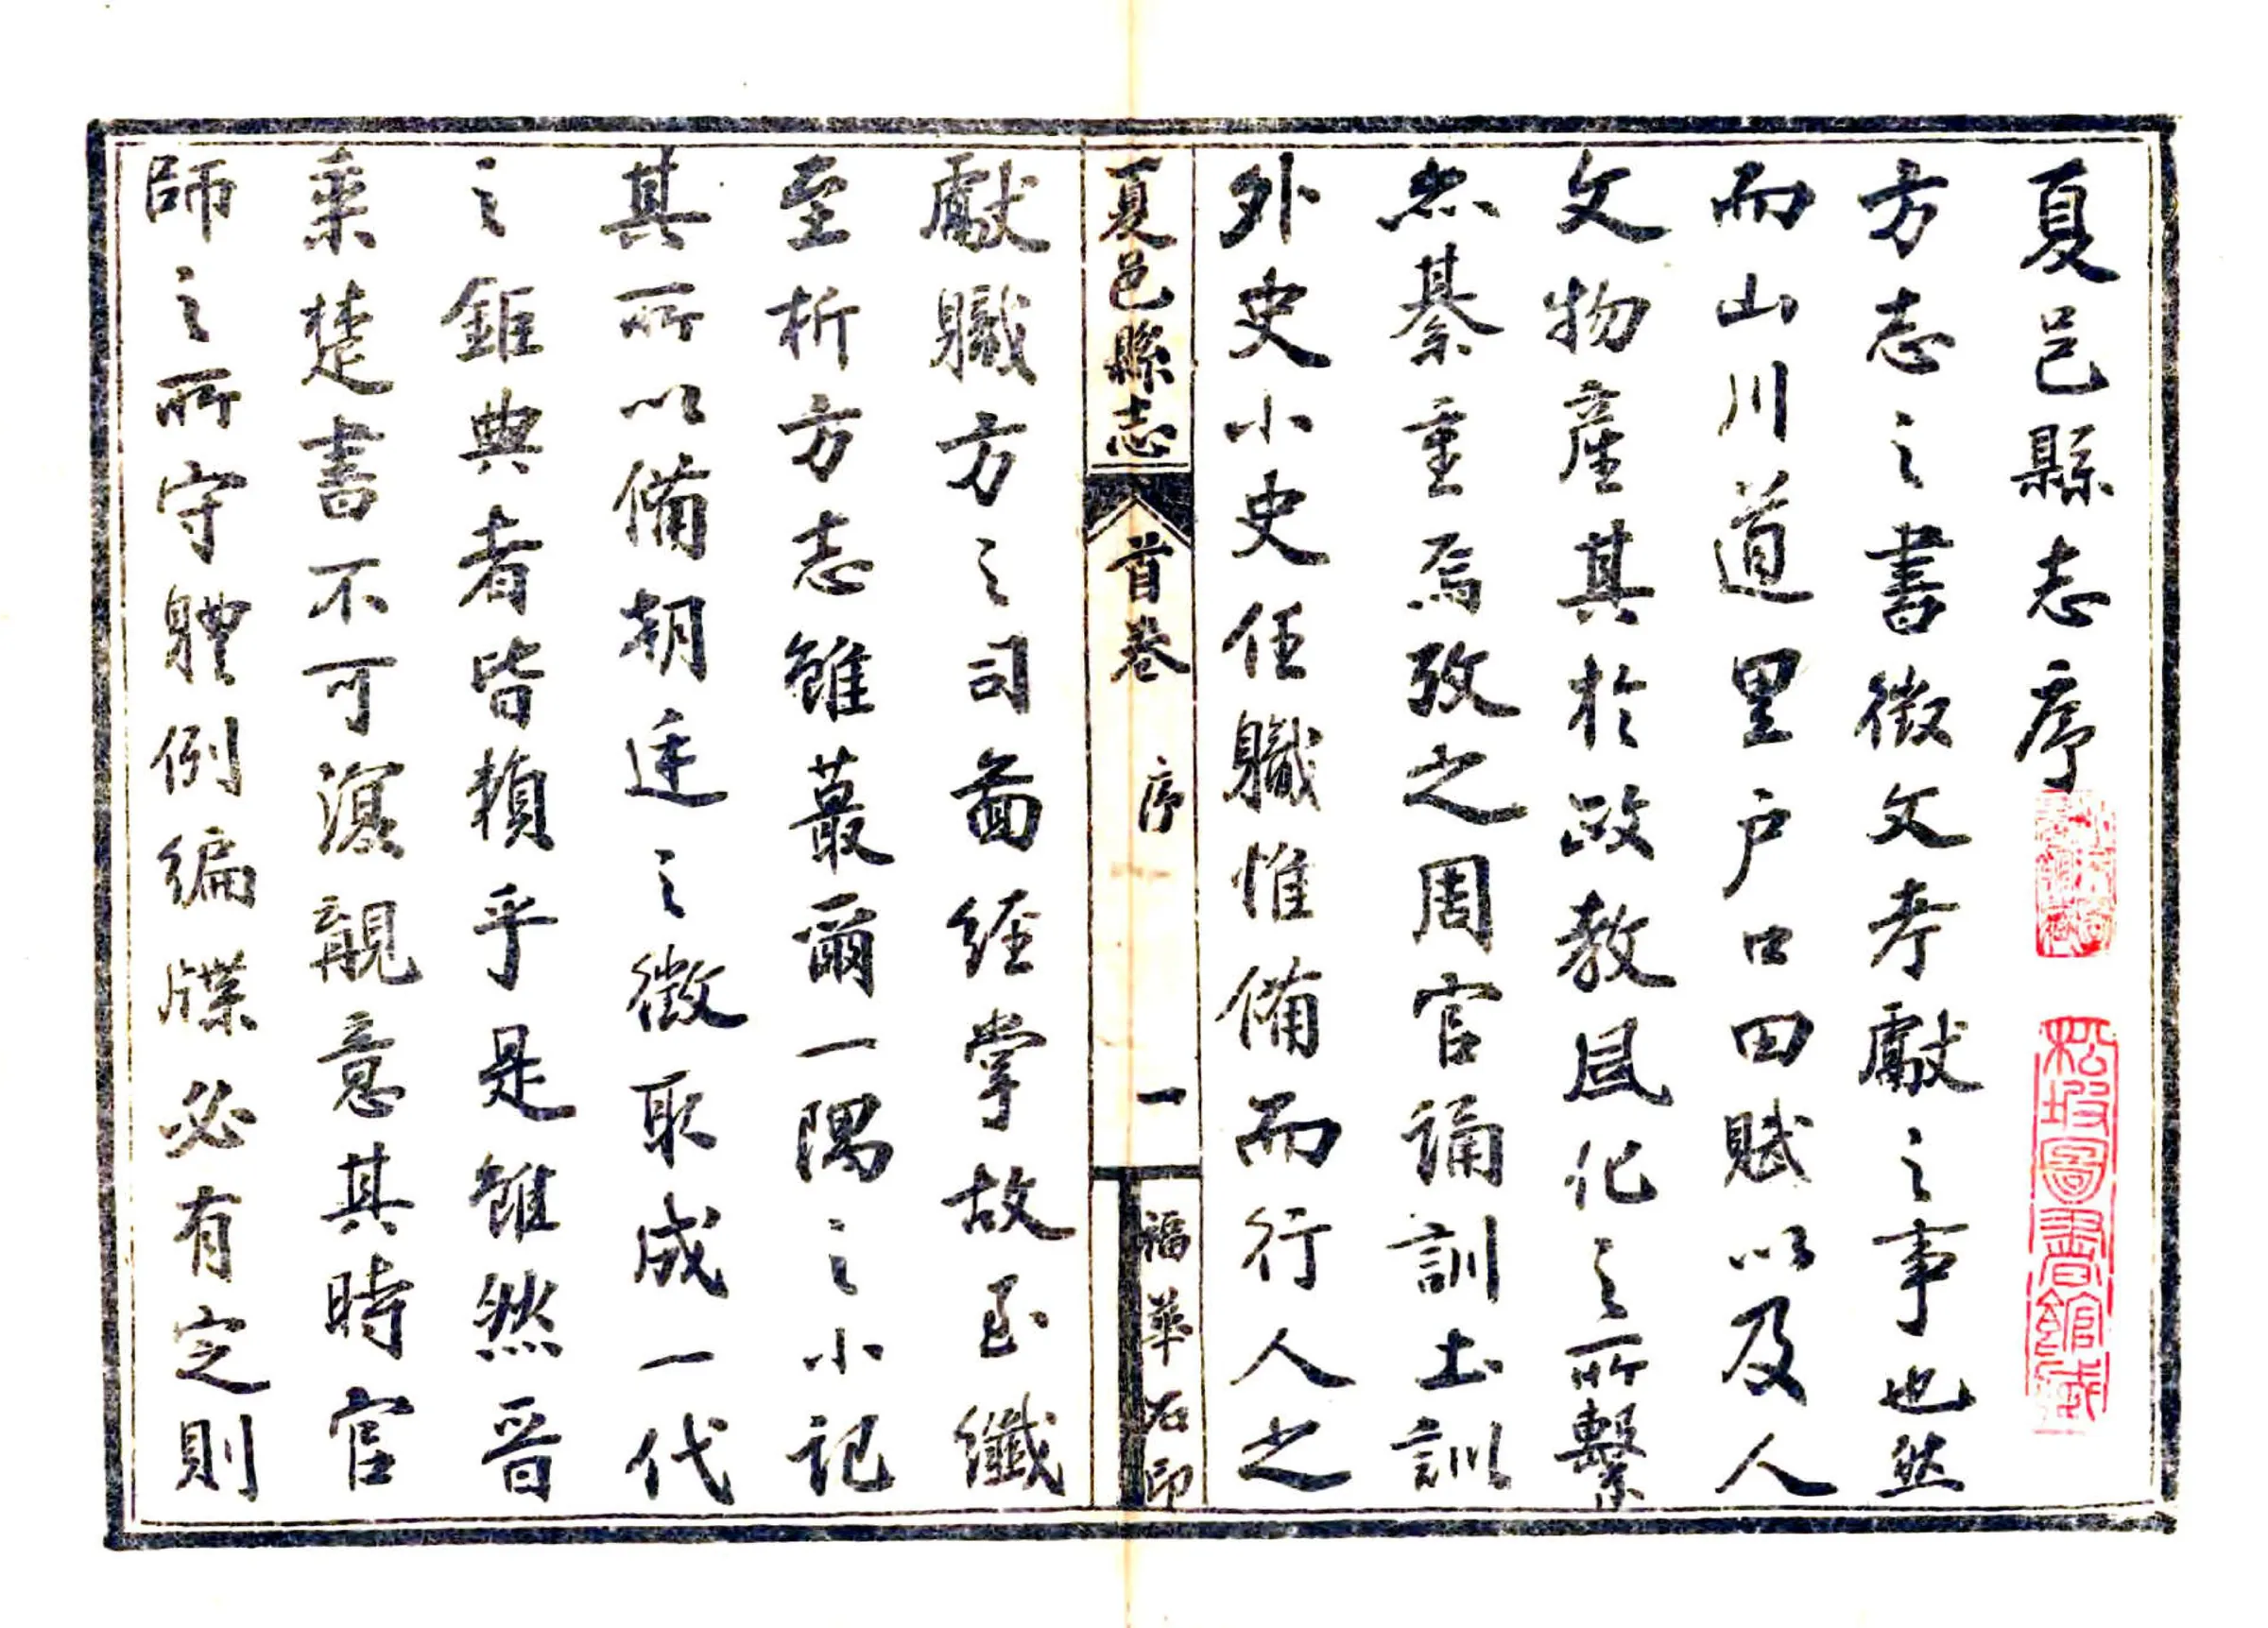 夏邑縣志序
松坡圖書館藏
方志之書徵文考獻之事也然
而山川道里户口田賦以及人
文物產其於政教風化之所繫
亦綦重焉攷之周官誦訓土訓
外史小史任職惟備而行人之
夏邑縣志 首卷 序 一 福華石印
獻職方之司圖經掌故至纖
至析方志雖蕞爾一隅之小記
其所以備朝廷之徵取成一代
之鉅典者皆賴乎是雖然晉
乘楚書不可意其時官
師之所守體例編牒必有定則